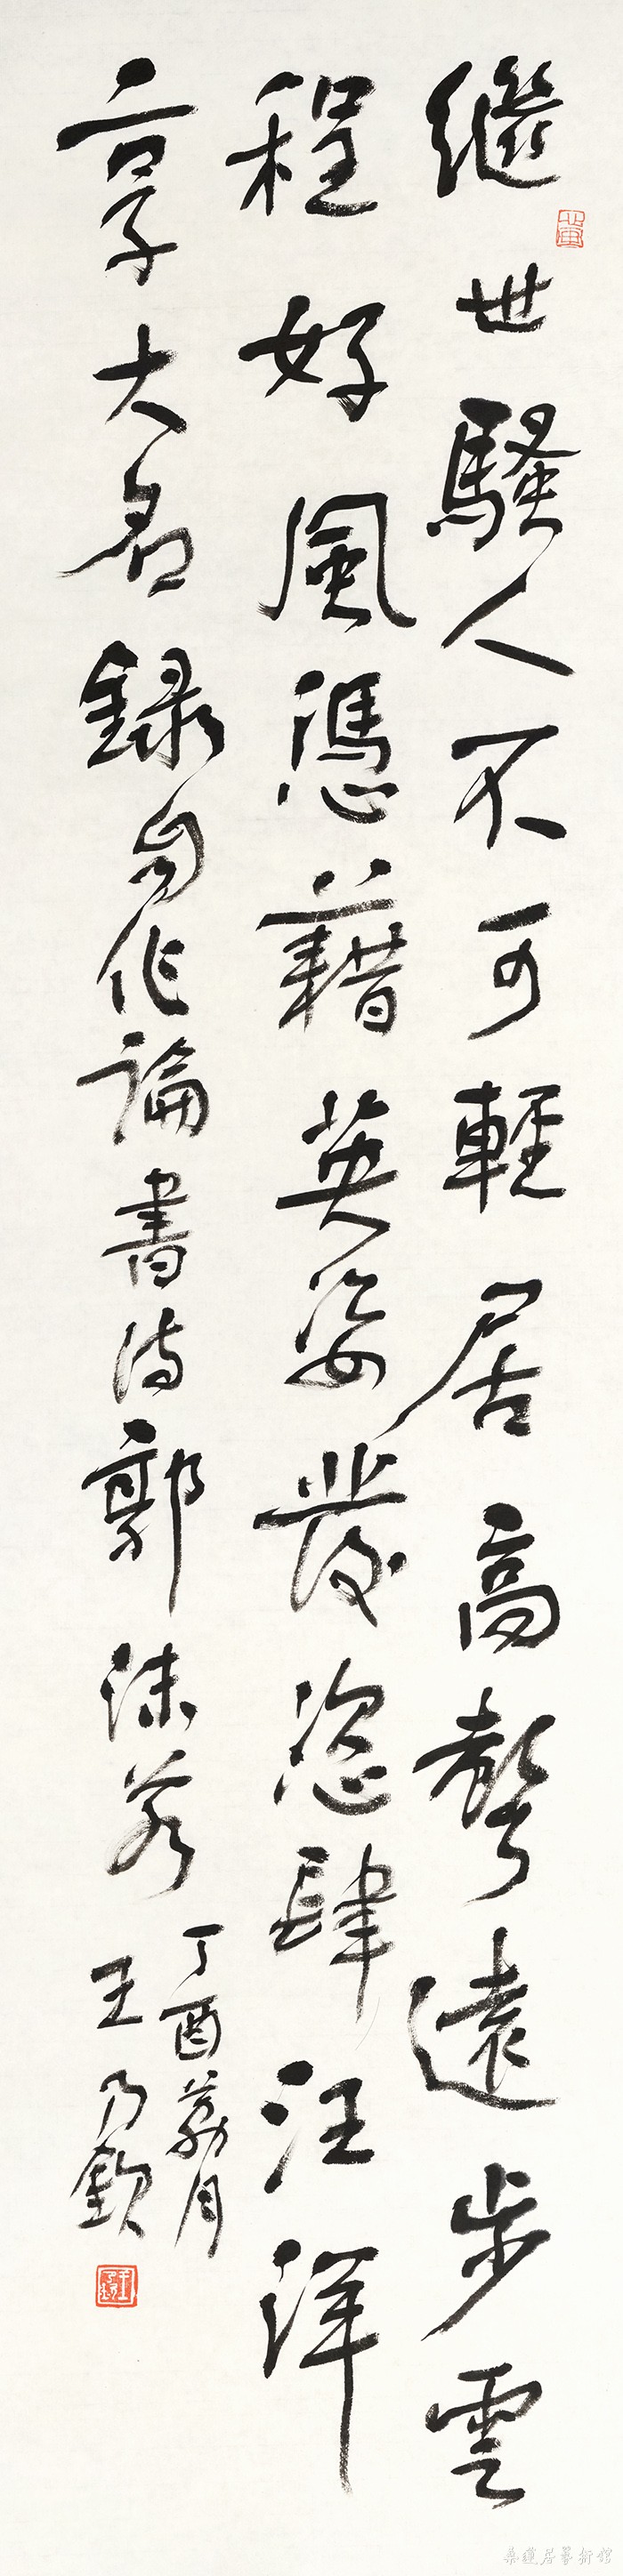 繼世騷人不可輕居高聲遠步雲
程好風憑藉英姿發恣肆汪洋
享大名錄自作論書詩郭沫若
丁酉荔月
王乃欽
桑蓮居藝術館